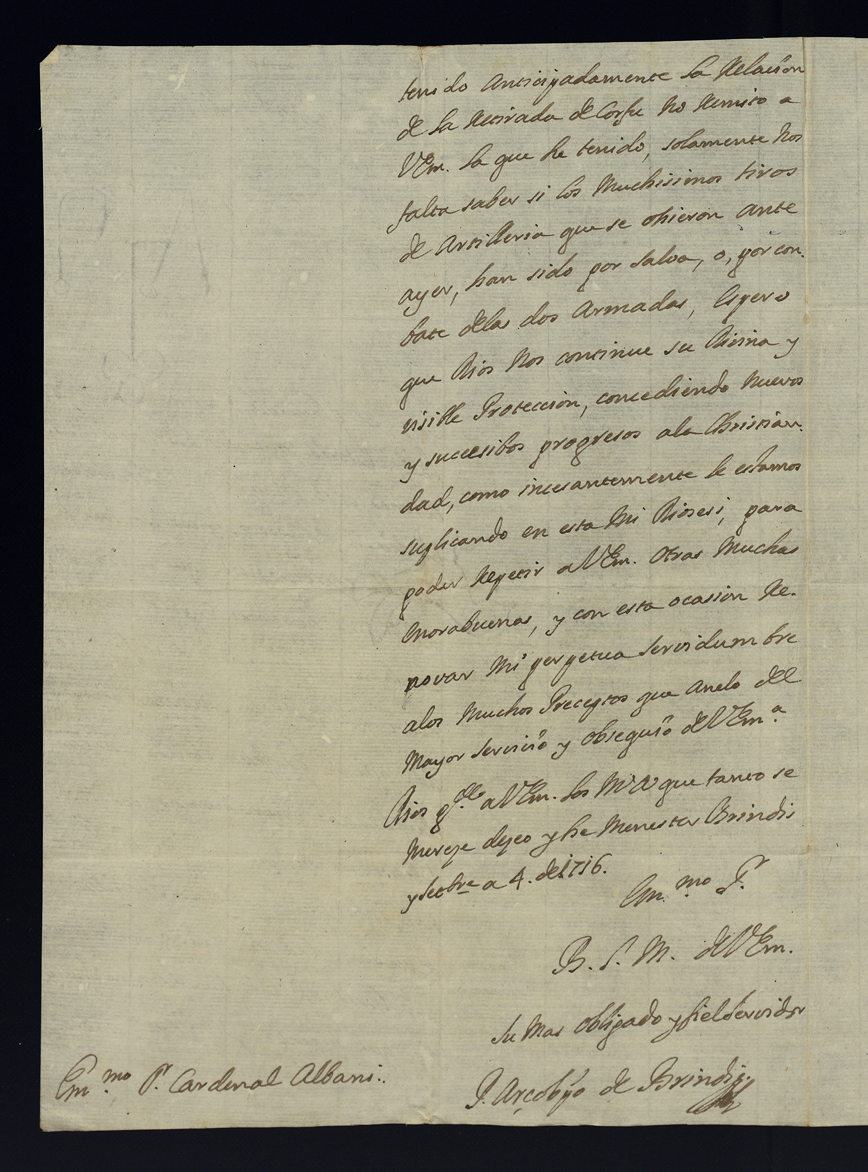 tenido anticipadamente la Relacion
de la Retirada de Corfu No Remito a
VEm. la que he tenido, solamente Nos
falta saber si los Muchissimos tiros
de Artilleria que se ohieron ante
ayer, han sido por salva, o, por con-
bate delas dos Armadas, Espero
que Dios Nos continue su Divina y
visible Proteccion, concediendo Nuevos
y succesibos progresos ala Christian-
dad, como incesantemente le estamos
suplicando en esta Mi Diosesi, para
poder Repetir a VEm. otras Muchas
Enorabuenas, y con esta ocasion Re-
novar Mi perpetua servidumbre
alos Muchos Preceptos que Anelo del
Mayor Servicio y Obsequio de VEm.ª
Dios g.de a VEm. los M.s A.s que tanto se
Mereze deseo y he Menester Brindis
y Setbre a 4. de 1716.
Em.mo S.r
B. L. M. de VEm.
su Mas Obligado y fiel Servidor
P. Arçobpo de Brindis
Em.mo S.r Cardenal Albani.